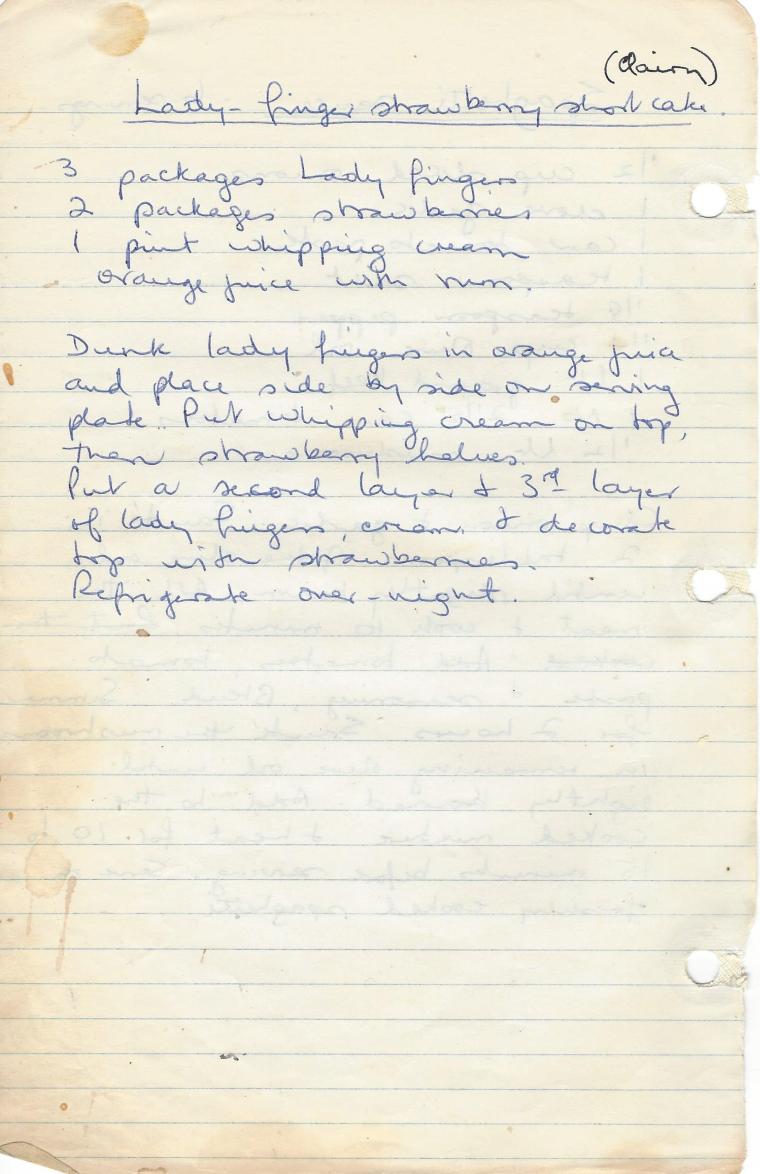 (Clairn)
Lady-finger strawberry short cake.
3 packages Lady fingers
2 packages strawberries
1 pint whipping cream
orange juice with rum.
Dunk lady fingers in orange juice
and place side by side on serving
plate. Put whipping cream on top,
then strawberry halves.
Put a second layer & 3rd layer
of lady fingers, cream & decorate
top with strawberries.
Refrigerate over-night.